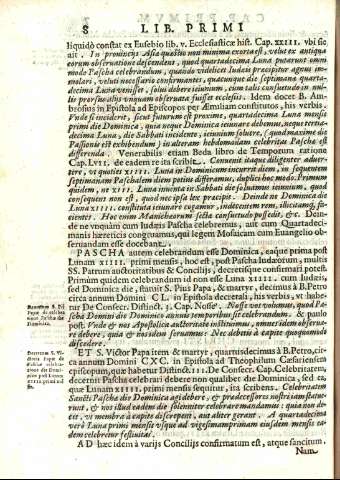 8 LIB. PRIMI
liquidò constat ex Eusebio lib. v. Ecclesiasticæ hist. Cap. XXIII. vbi sic
ait. In prouincijs Asiæ quæstio non minima exorta est, velut ex antiqua
eorum obseruatione descendens, quod quartadecima Luna putarent omni
modo Pascha celebrandum, quando videlicet Iudæis præcipitur agnus im-
molari, veluti necessario confirmantes, quacumque die septimanæ quarta-
decima Luna venisset, solui debere ieiunium, cum talis consuetudo in nul-
lis prorsus alijs vnquam obseruata fuisset ecclesijs. Idem docet B. Am-
brosius in Epistola ad Episcopos per Æmiliam constitutos, his verbis.
Vnde si inciderit, sicut futurum est proxime, quartadecima Luna mensis
primi die Dominica, quia neque Dominica ieiunare debemus, neque terria-
decima Luna, die Sabbati incidente, ieiunium soluere, (quod maxime die
Passionis est exhibendum) in alteram hebdomadam celebritas Paschæ est
differenda. Venerabilis etiam Beda libro de Temporum ratione
Cap. LVII. de eadem re ita scribit. Conuenit itaque diligenter aduer-
tere, vt quoties XIIII. Luna in Dominicum incurrit diem, in sequentem
septimanam Paschalem diem potius differamus, duplici hoc modo. Primum
quidem, ne XIII. Luna inuenta in Sabbati die soluamus ieiunium, quod
consequens non est, quod nec ipsa lex præcipit. Deinde ne Dominica die
Luna XIIII. constituta ieiunare cogamur, indecentem rem, illicitamque, fa-
cientes. Hoc enim Manichæorum secta consuetudo possedit, & c. Dein-
de ne vnquam cum Iudæis Pascha celebremus, aut cum Quartadeci-
manis hæreticis congruamus, qui legem Mosaicam cum Euangelio ob-
seruandam esse docebant.
PASCHA autem celebrandum esse Dominica, eaque prima post
Lunam XIIII. primi mensis, hoc est, post Pascha Iudæorum, multis
SS. Patrum auctoritatibus & Concilijs, decretisque confirmari potest.
Primum quidem celebrandum id non esse Luna XIIII. cum Iudæis,
sed Dominica die, statuit S. Pius Papa, & martyr, decimus à B. Petro
circa annum Domini CL. in Epistola decretali, his verbis, vt habe-
tur De Consecr. Distinct. 3. Cap. Nosse. Nosse vos volumus, quod Pa-
scha Domini die Dominica annuis solennitatibus sit celebrandum. & paulo
post. Vnde & nos Apostolica auctoritate instituimus, omnes idem obserua-
re debere, quia & nos idem seruamus: Nec debetis à capite quoquomodo
discedere.
ET S. Victor Papa item & martyr, quartusdecimus à B. Petro, cir-
ca annum Domini CXC. in Epistola ad Theophilum Cæsariensem
episcopum, quæ habetur Distinct. III. De Consecr. Cap. Celebritatem,
decernit Pascha celebrari debere non qualibet die Dominica, sed ea,
quæ Lunam XIIII. primi mensis sequitur, ita scribens. Celebritatem
Sancti Paschæ die Dominica agi debere, & prædecessores nostri iam statue-
runt, & nos illud eadem die solenniter celebrare mandamus: quia non de-
cet, vt membra à capite discrepent, aut aliter gerant. A quartadecima
verò Luna primi mensis vsque ad vigesimamprimam eiusdem mensis ea-
dem celebretur festiuitas.
AD hæc idem à varijs Concilijs confirmatum est, atque sancitum.
Nam